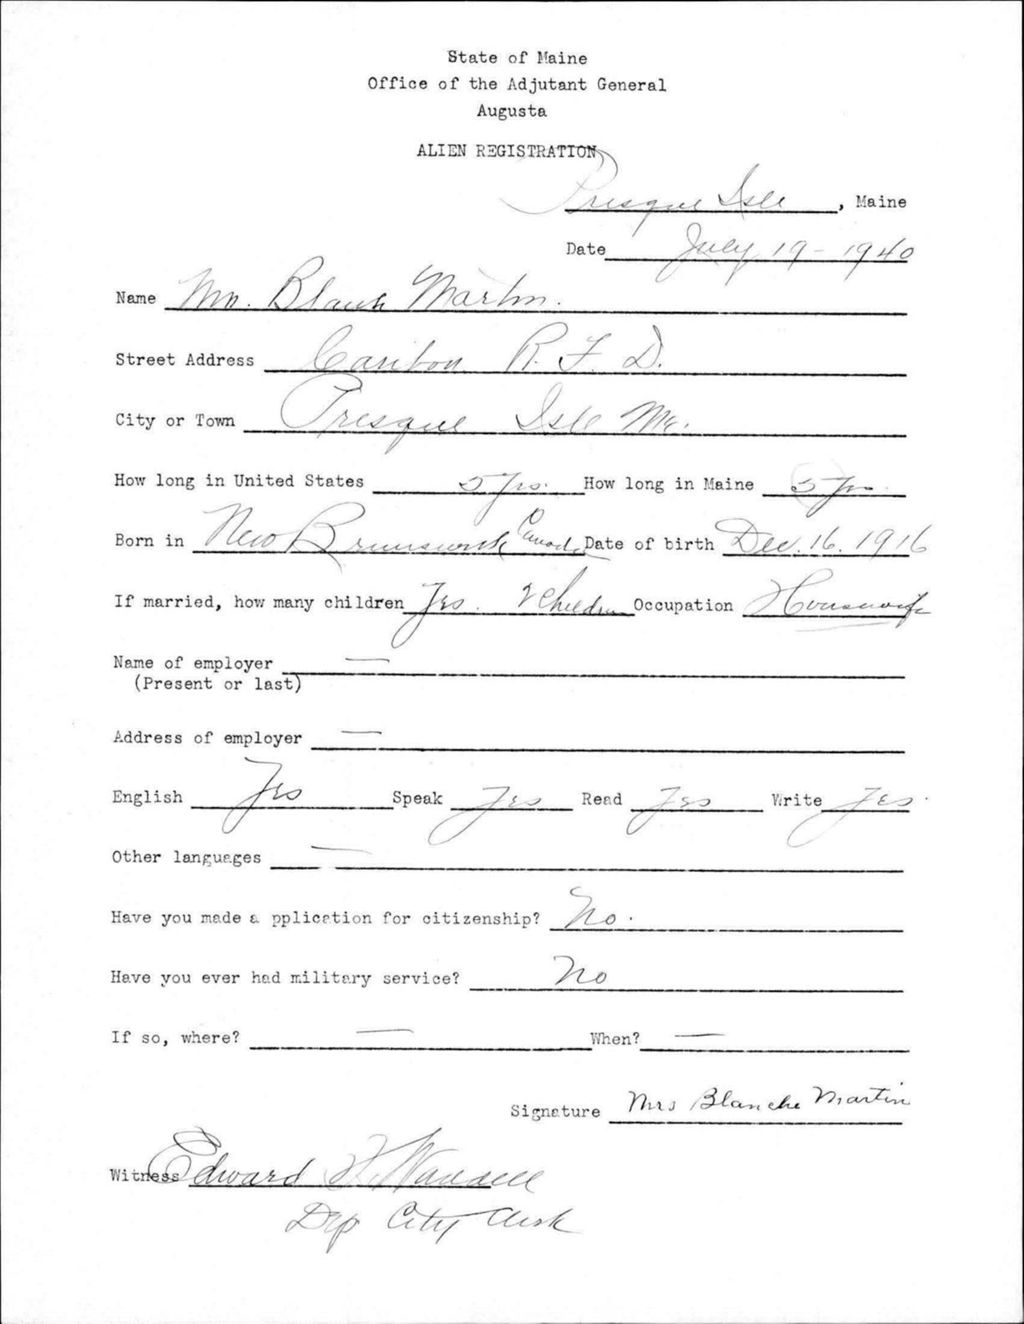 State of Maine
Office of the Adjutant General
Augusta
ALIEN REGISTRATION
Presque Isle, Maine
Date July 19 - 1940
Name Mrs. Blanch Martin.
Street Address Caribou R. F. D.
City or Town Presque Isle Me.
How long in United States 5 yrs. How long in Maine 5 yrs.
Born in New Brunswick Canada Date of birth Dec. 16. 1916
If married, how many children Yes. 2 Children Occupation Housewife
Name of employer —
(Present or last)
Address of employer —
English Yes Speak Yes Read Yes Write Yes.
Other languages —
Have you made a pplication for citizenship? No.
Have you ever had military service? No
If so, where? — When? —
Signature Mrs Blanche Martin
Witness Edward
Dep City Clerk